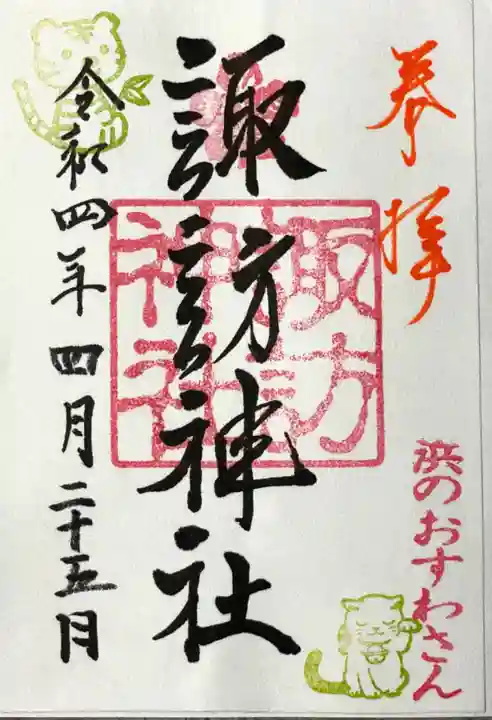 奉拝
浜のおすわさん
諏訪神社
諏訪神社
令和四年四月二十五日